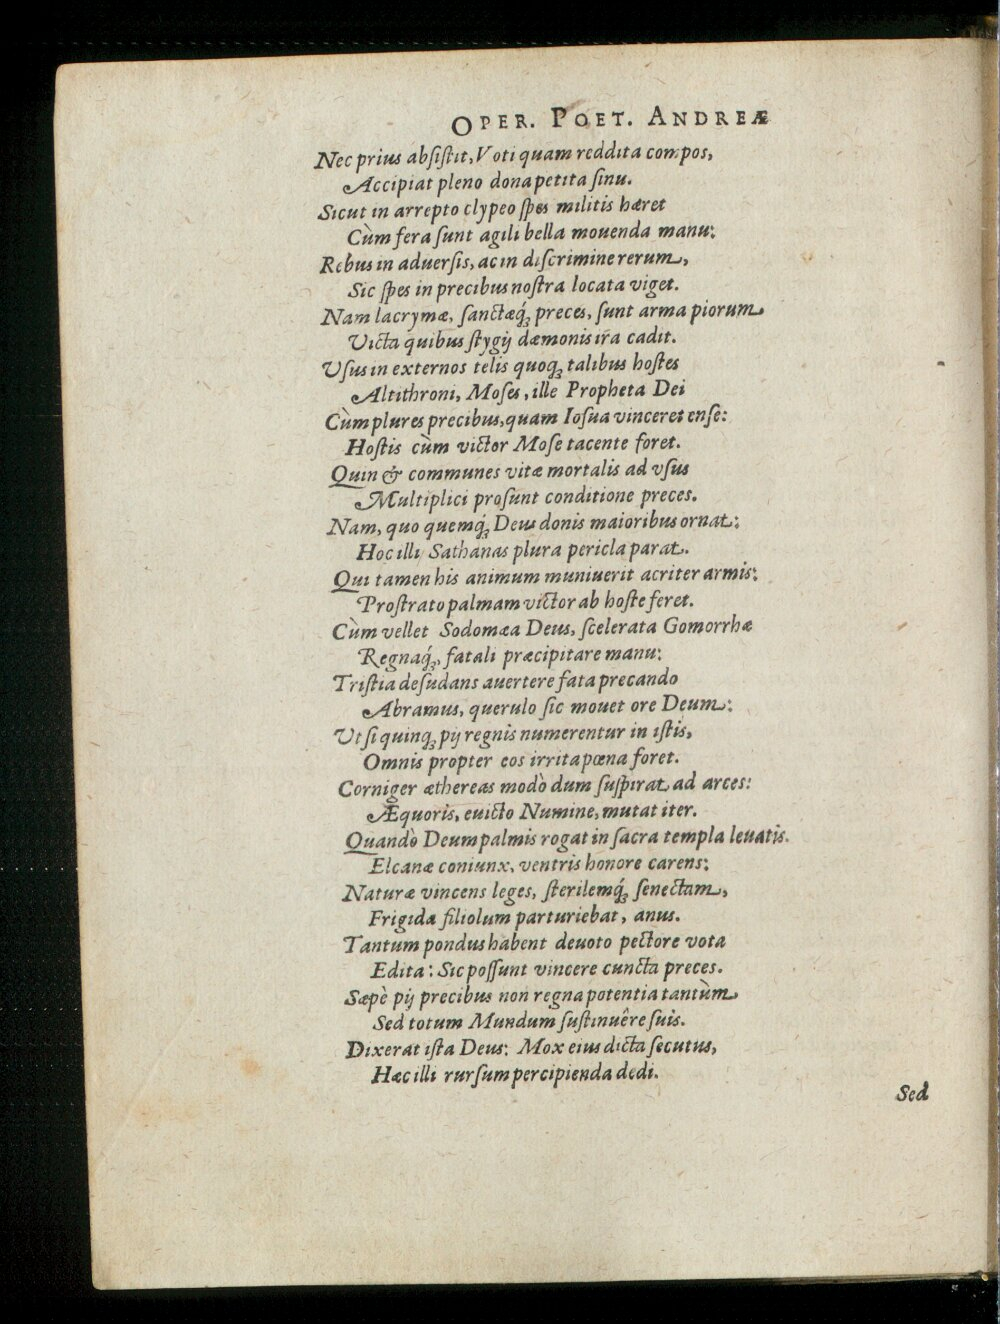 OPER. POET. ANDREÆ
Nec prius absistit, Voti quam reddita compos,
Accipiat pleno dona petita sinu.
Sicut in arrepto clypeo spes militis hæret
Cùm fera sunt agili bella mouenda manu:
Rebus in aduersis, ac in discrimine rerum,
Sic spes in precibus nostra locata viget.
Nam lacrymæ, sanctæq́ꝫ preces, sunt arma piorum
Victa quibus stygij dæmonis ira cadit.
Vsus in externos telis quoqꝫ talibus hostes
Altithroni, Moses, ille Propheta Dei
Cùm plures precibus, quam Iosua vinceret ense:
Hostis cùm victor Mose tacente foret.
Quin & communes vitæ mortalis ad vsus
Multiplici prosunt conditione preces.
Nam, quo quemq́ꝫ Deus donis maioribus ornat:
Hoc illi Sathanas plura pericla parat.
Qui tamen his animum muniuerit acriter armis:
Prostrato palmam victor ab hoste feret.
Cùm vellet Sodomæa Deus, scelerata Gomorrhæ
Regnaq́ꝫ, fatali præcipitare manu:
Tristia desudans auertere fata precando
Abramus, querulo sic mouet ore Deum:
Vt si quinqꝫ pij regnis numerentur in istis,
Omnis propter eos irrita pœna foret.
Corniger æthereas modò dum suspirat ad arces:
Æquoris, euicto Numine, mutat iter.
Quandò Deum palmis rogat in sacra templa leuatis.
Elcanæ coniunx, ventris honore carens:
Naturæ vincens leges, sterilemq́ꝫ senectam,
Frigida filiolum parturiebat, anus.
Tantum pondus habent deuoto pectore vota
Edita: Sic possunt vincere cuncta preces.
Sæpè pij precibus non regna potentia tantùm
Sed totum Mundum sustinuêre suis.
Dixerat ista Deus: Mox eius dicta secutus,
Hæc illi rursum percipienda dedi.
Sed